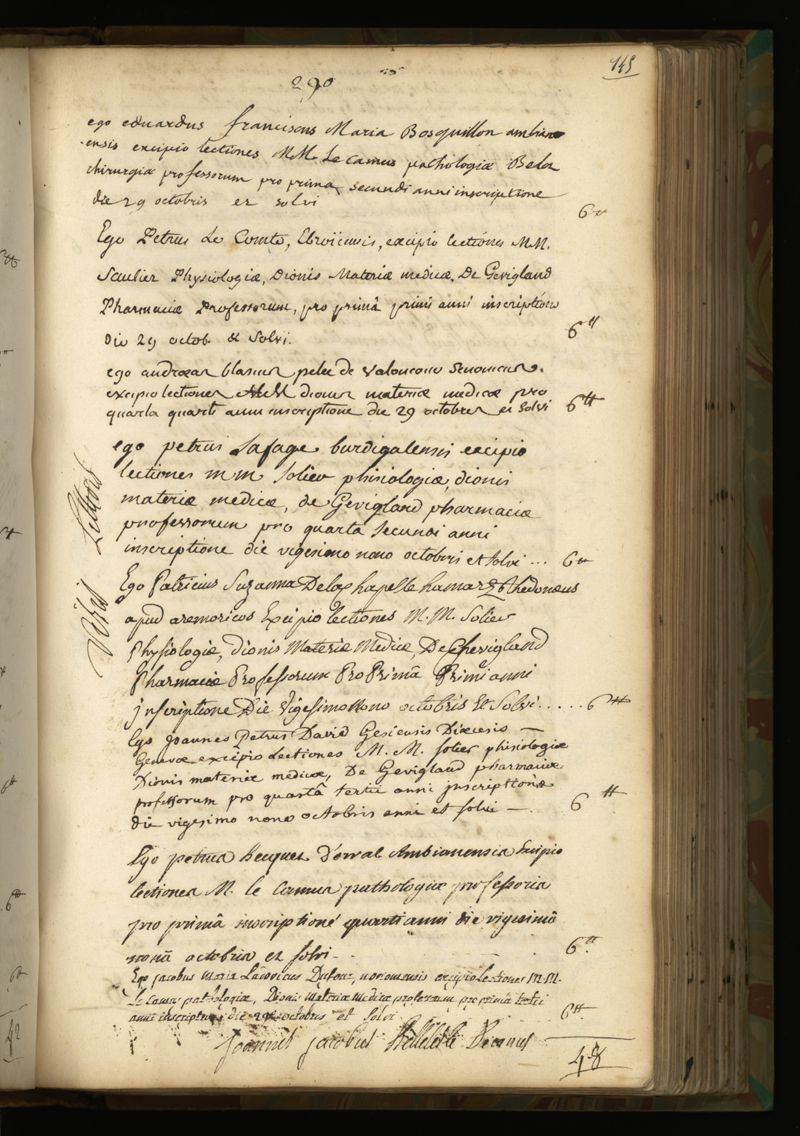 145
290
ego eduardus franciscus Maria Bosquillon ambian
ensis excipio lectiones MM. Le camus pathologiæ Belot
chirurgiæ professorum pro prima secundi anni inscriptione
die 29 octobris et solvi 6 tt
Ego Petrus Le Comte, Ebroïcensis, excipio lectiones MM.
Saulier Physiologiæ, Dionis Materiæ medicæ, De Gevigland
Pharmaciæ Professorum, pro primâ primi anni inscriptione
die 29 octob & Solvi. 6 tt
ego andreas blasius pelée de valoncour Senonensis
excipio lectiones MM dionis materiæ medicæ pro
quarta quarti anni inscriptione die 29 octobris et solvi 6 tt
ego petrus Lafage burdigalensis excipio
lectiones m m Solier phisiologiæ, dionis
materiæ medicæ, de Gevigland pharmaciæ
professorum pro quarta Secundi anni
inscriptione die vigesimo nono octobris et solvi ... 6 tt
Ego Patricius Suzanna De la chapelle hamard Rhedonæus
apud aremoricos Excipio lectiones M. M. Solier
Physiologiæ, dionis Materiæ Medicæ, De Chevigland
Pharmaciæ Professorum Pro Primâ Primi anni
jnscriptione Die Vigesimo Nono octobris Et Solvi..... 6 tt
Ego Joannes Petrus David Gesiensis Diœcesis
Genevæ excipio Lectiones M. M. Solier phisiologiæ
Dionis materiæ medicæ, De Gevigland pharmaciæ
professorum pro quartâ tertii anni jnscriptione
die vigesimo nono octobris anni et solvi — . 6 tt
Ego petrus hecquet D'orval Ambianensis Excipio
lectiones M. le Camus pathologiæ professoris
pro primâ inscriptione quarti anni die vigesimâ
nonâ octobris et solvi - . 6 tt
Ego Jacobus Maria Ludovicus Dufour, excipio Lectiones MM.
Le Camus pathologiæ, Dionis Materiæ Medicæ pro primâ tertii
anni inscriptione die 29 octobris et Solvi . 6 tt
Joannes jacobus Belleteste Decanus
48